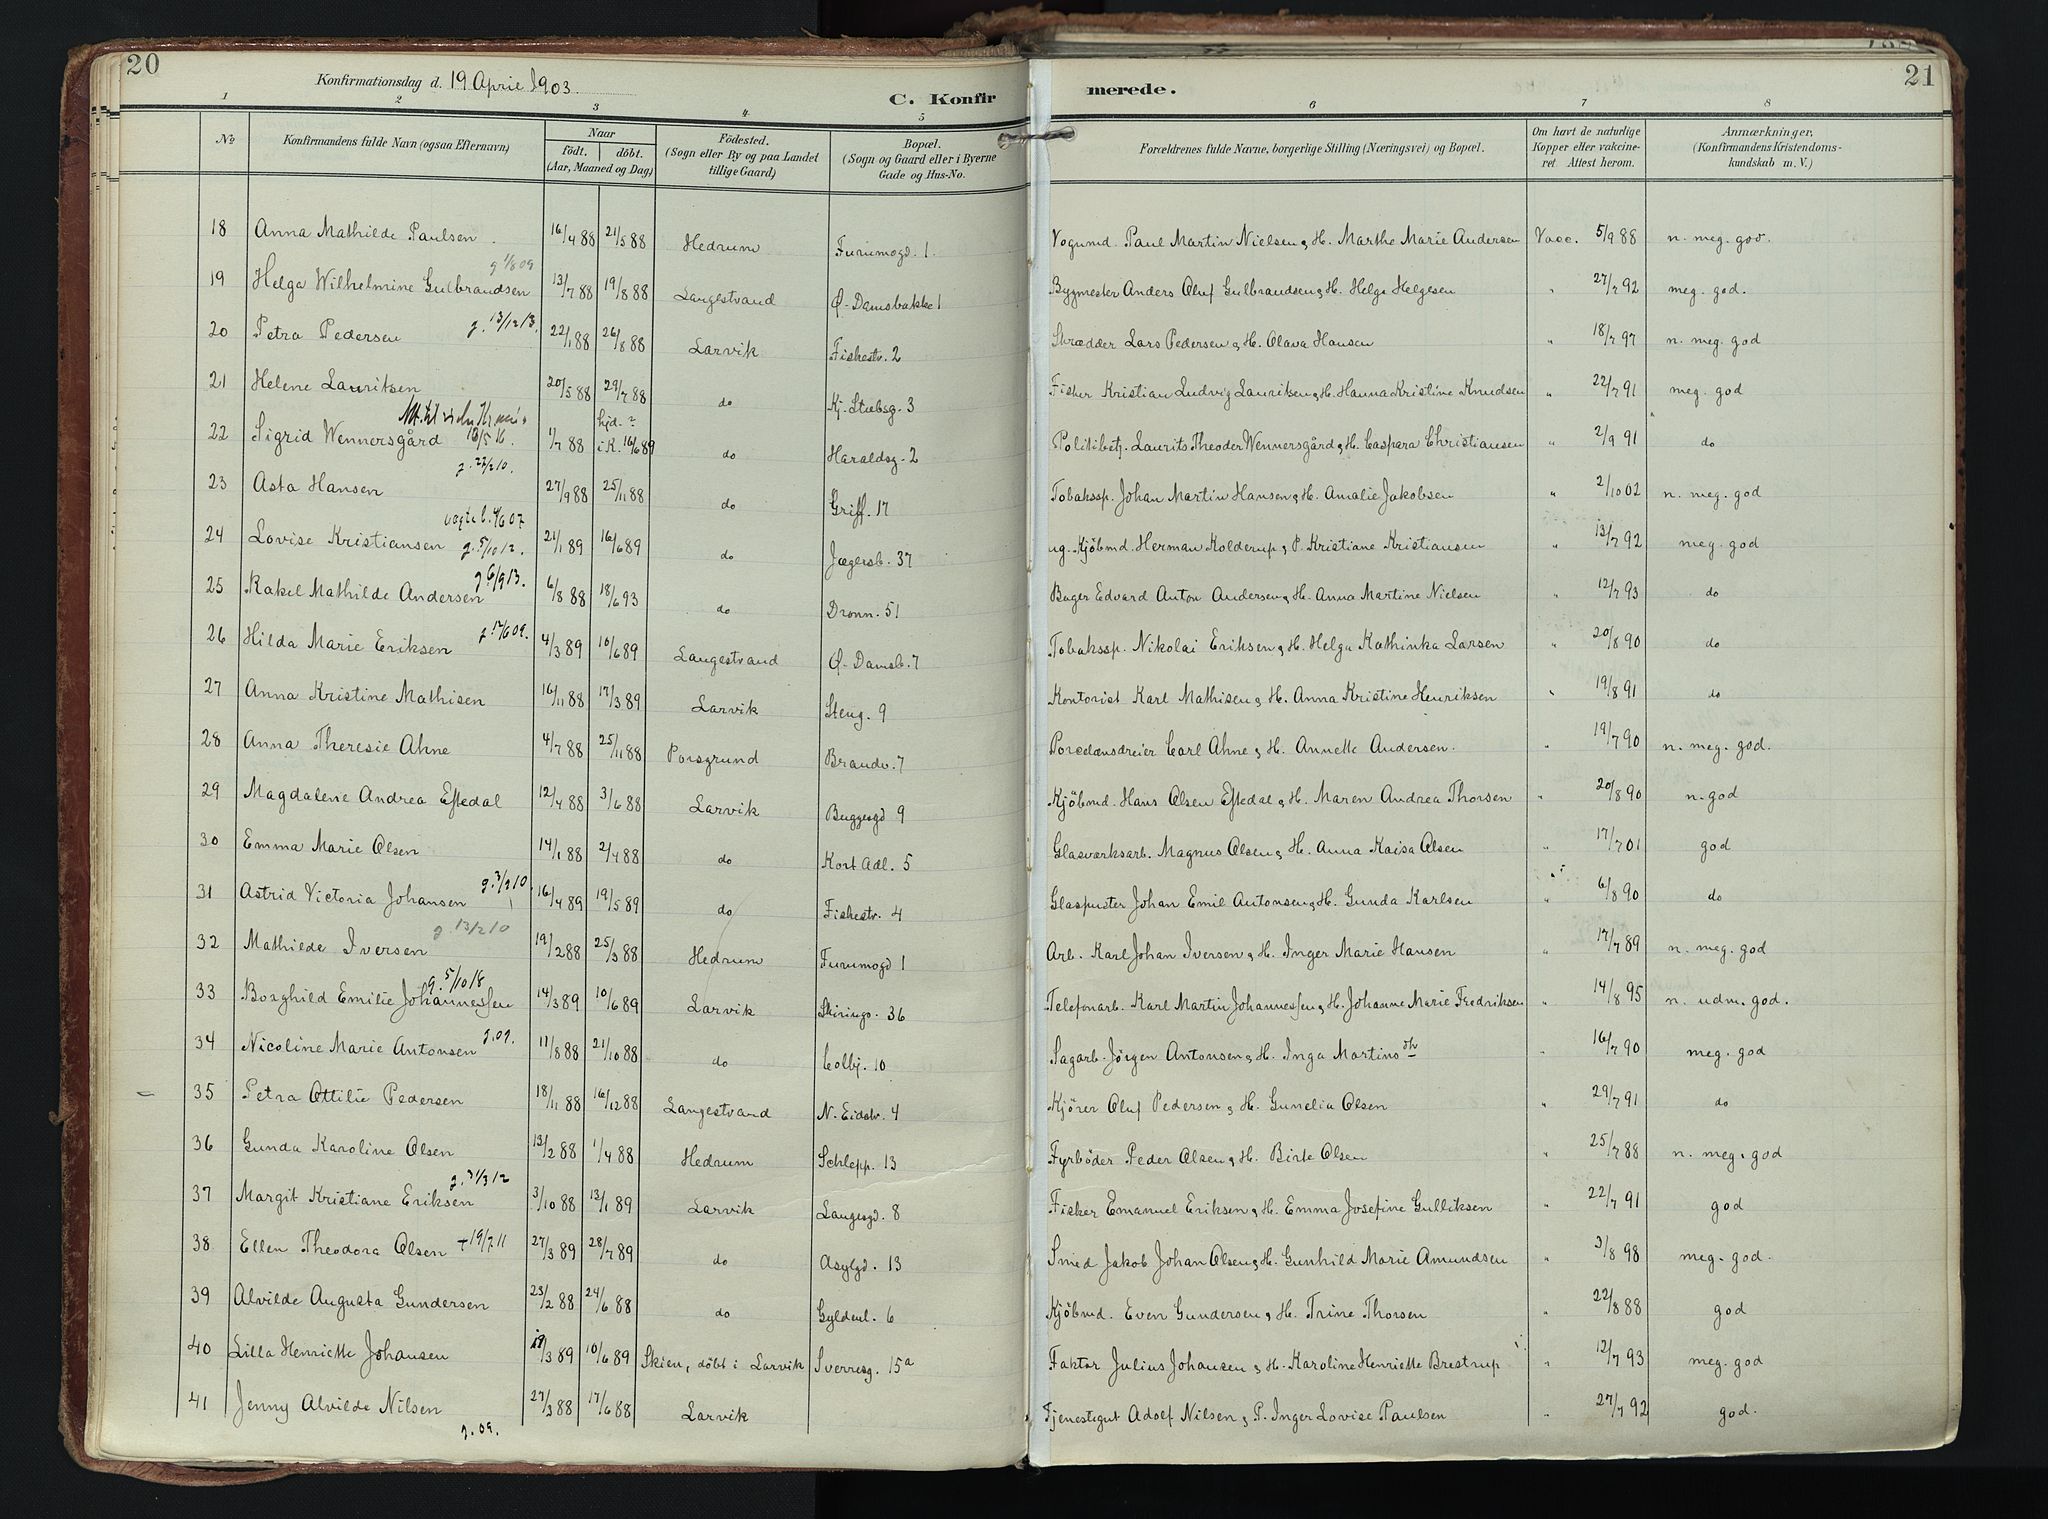 20
Konfirmationsdag d. 19 April 1903.
C. Konfir
merede.
21
1 2 3 4 5 6 7 8
No
Konfirmandens fulde Navn (ogsaa Efternavn)
Naar
födt. döbt.
(Aar, Maaned og Dag)
Födested.
(Sogn eller By og paa Landet
tillige Gaard)
Bopæl.
(Sogn og Gaard eller i Byerne
Gade og Hus-No.
Forældrenes fulde Navne, borgerlige Stilling (Næringsvei) og Bopæl.
Om havt de naturlige
Kopper eller vakcine-
ret Attest herom.
Anmærkninger.
(Konfirmandens Kristendoms-
kundskab m. V.)
18 Anna Mathilde Paulsen. 16/4 88 21/5 88 Hedrum Furumogd. 1. Vognmd. Paul Martin Nielsen & H. Marthe Marie Andersen Vacc. 5/9 88 n. meg. god.
g 1/8 09
19 Helga Wilhelmine Gulbrandsen 13/7 88 19/8 88 Langestrand Ø-Damsbakke 1 Bygmester Anders Oluf Gulbrandsen & H. Helge Helgesen " 27/7 92 meg. god.
20 Petra Pedersen g. 13/12 13. 22/1 88 26/8 88 Larvik Fiskestr. 2 Skrædder Lars Pedersen & H. Olava Hansen " 18/7 97 n. meg. god
21 Helene Lauritsen 20/5 88 29/7 88 do Kj. Stubsg. 3 Fisker Kristian Ludvig Lauritsen & H. Hanna Kristine Knudsen " 22/7 91 meg. god
22 Sigrid Wennersgård 1/7 88 hjd. i K. 16/6 89 do Haraldsg. 2 Politibetj. Laurits Theodor Wennersgård & H. Caspara Christiansen " 2/9 91 do
g. 22/2 10.
23 Asta Hansen 27/9 88 25/11 88 do Griff. 17 Tobakssp. Johan Martin Hansen & H. Amalie Jakobsen " 2/10 02 n. meg. god
24 Lovise Kristiansen g. 5/10 12. 21/1 89 16/6 89 do Jægersb. 37 ug. Kjöbmd. Herman Kolderup & P. Kristiane Kristiansen " 13/7 92 meg. god
g 6/9 13.
25 Rakel Mathilde Andersen 6/8 88 18/6 93 do Dronn. 51 Bager Edvard Anton Andersen & H. Anna Martine Nielsen " 12/7 93 do
26 Hilda Marie Eriksen g. 12/6 09. 4/3 89 10/6 89 Langestrand Ø-Damsb. 7 Tobakssp. Nikolai Eriksen & H. Helga Kathinka Larsen " 20/8 90 do
27 Anna Kristine Mathisen 16/11 88 17/3 89 Larvik Steng. 9 Kontorist Karl Mathisen & H. Anna Kristine Henriksen " 19/8 91 do
28 Anna Theresie Ahne 4/7 88 25/11 88 Porsgrund Brandv. 7 Porcelænsdreier Carl Ahne & H. Annette Andersen. " 19/7 90 n. meg. god.
29 Magdalene Andrea Eftedal 12/4 88 3/6 88 Larvik Buggesgd 9 Kjöbmd. Hans Olsen Eftedal & H. Maren Andrea Thorsen " 20/8 90 n. god
30 Emma Marie Olsen 14/1 88 2/4 88 do Kort Adl. 5 Glasværksarb. Magnus Olsen & H. Anna Kaisa Olsen " 17/7 01 god
31 Astrid Victoria Johansen g. 3/2 10 16/4 89 19/5 89 do Fiskestr. 4 Glaspuster Johan Emil Antonsen & H. Gunda Karlsen " 6/8 90 do
32 Mathilde Iversen g. 13/2 10 19/2 88 25/3 88 Hedrum Furumogd 1 Arb. Karl Johan Iversen & H. Inger Marie Hansen " 17/7 89 n. meg. god
g. 5/10 18
33 Borghild Emilie Johannessen 14/3 89 10/6 89 Larvik Skirings. 36 Telefonarb. Karl Martin Johannessen & H. Johanne Marie Fredriksen " 14/8 95 n. udm. god.
34 Nicoline Marie Antonsen g. 09. 11/8 88 21/10 88 do Colbj. 10 Sagarb. Jörgen Antonsen & H. Inga Martinsdtr " 16/7 90 meg. god
35 Petra Ottilie Pedersen 18/11 88 16/12 88 Langestrand N. Eidstr. 4 Kjörer Oluf Pedersen & H. Gunelia Olsen " 29/7 91 do
36 Gunda Karoline Olsen 13/2 88 1/4 88 Hedrum Schlepp. 13 Fyrböder Peder Olsen & H. Birte Olsen " 25/7 88 n. meg. god
g. 31/3 12
37 Margit Kristiane Eriksen 3/10 88 13/1 89 Larvik Langesgd. 8 Fisker Emanuel Eriksen & H. Emma Josefine Gulliksen " 22/7 91 god
38 Ellen Theodora Olsen † 19/7 11 27/3 89 28/7 89 do Asylgd. 13 Smed Jakob Johan Olsen & H. Gunhild Marie Amundsen " 3/8 98 meg. god.
39 Alvilde Augusta Gundersen 23/2 88 24/6 88 do Gyldenl. 6 Kjöbmd. Even Gundersen & H. Trine Thorsen " 22/8 88 god
40 Lilla Henriette Johansen 19/3 89 10/6 89 Skien, döbt i Larvik Sverresg. 15a Faktor Julius Johansen & H. Karoline Henriette Brestrup " 12/7 93 meg. god
41 Jenny Alvilde Nilsen 27/3 88 17/6 88 Larvik Tjenestegut Adolf Nilsen & P. Inger Lovise Paulsen " 27/7 92 god.
g. 09.